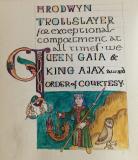 HRODWYN
TROLLSLAYER
for exceptional
comportment at
all times we
QUEEN GAIA &
KING AJAX award
ORDER OF COURTESY.